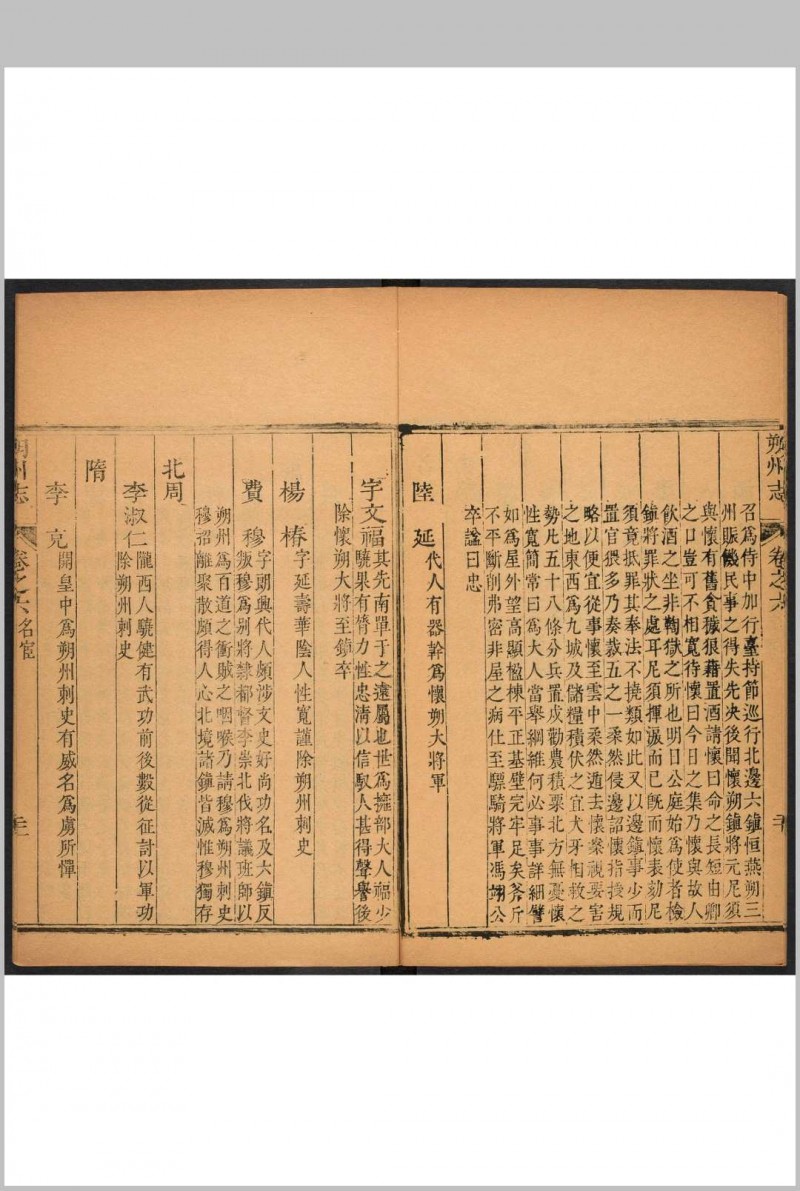 朔州志　卷之六　二十
召爲侍中加行臺持節巡行北邊六鎮恒燕朔三
州賑饑民事之得失先决後聞懷朔鎮將元尼須
與懷有舊貪穢狼藉置酒請懷曰命之長短由卿
之口豈可不相寬待懷曰今日之集乃懷與故人
飲酒之坐非鞫獄之所也明日公庭始爲使者檢
鎮將罪狀之處耳尼須揮淚而已旣而懷表劾尼
須竟抵罪其奉法不撓類如此又以邊鎮事少而
置官猥多乃奏裁五之一柔然侵邊詔懷指授規
略以便宜從事懷至雲中柔然遁去懷案視要害
之地東西爲九城及儲糧積伏之宜犬牙相救之
勢凡五十八條分兵置戍勸農積粟北方無憂懷
性寬簡常曰爲大人當舉綱維何必事事詳細譬
如爲屋外望高顯楹棟平正基壁完牢足矣斧斤
不平斷削弗密非屋之病仕至驃騎將軍馮翊公
卒諡曰忠
陸延代人有器幹爲懷朔大將軍
宇文福其先南單于之遠屬也世爲擁部大人福少
驍果有膂力性忠淸以信馭人甚得聲譽後
除懷朔大將至鎮卒
楊椿字延壽華陰人性寬謹除朔州刺史
費穆字朗興代人頗涉文史好尚功名及六鎮反
叛穆爲别將隷都督李崇北伐將議班師以
朔州爲百道之衝賊之咽喉乃請穆爲朔州刺史
穆招離聚散頗得人心北境諸鎮皆滅惟穆獨存
北周
李淑仁隴西人驍健有武功前後數從征討以軍功
除朔州刺史
隋
李充開皇中爲朔州刺史有威名爲虜所憚
朔州志　卷之六　名宦